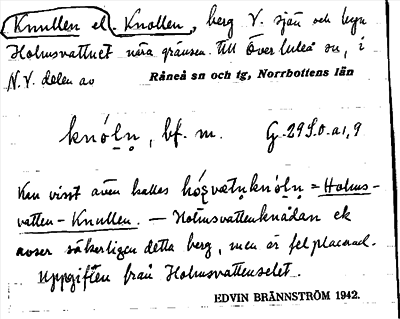 Knullen el. Knollen, berg V. sjön och byn
Holmsvattnet nära gränsen till Överluleå sn, i
N.V. delen av Råneå sn och tg, Norrbottens län
knó̱ln̥, bf. m. G. 29 S.O. a1,9
Kan visst även kallas hó̱l̥vatn̥knó̱ln̥ = Holms-
vatten-Knullen. — Holmsvattenknådan ek
avser säkerligen detta berg, men är felplacerad.
Uppgiften från Holmsvattenselet.
EDVIN BRÄNNSTRÖM 1942.